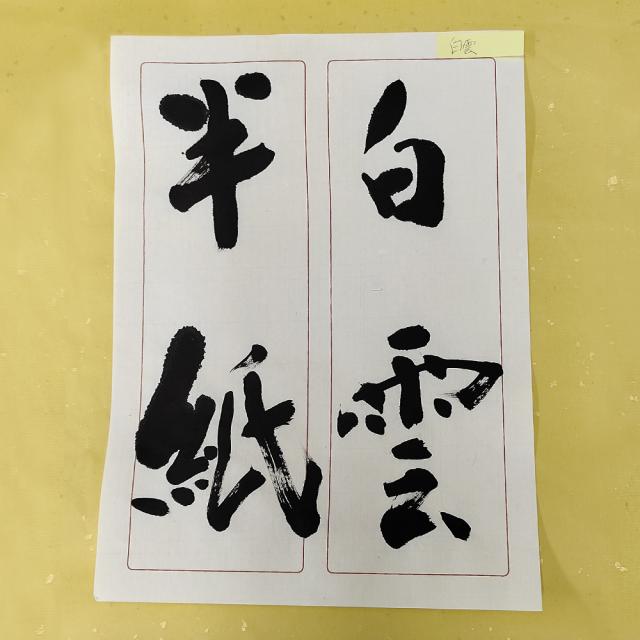 白雲
白雲
半紙